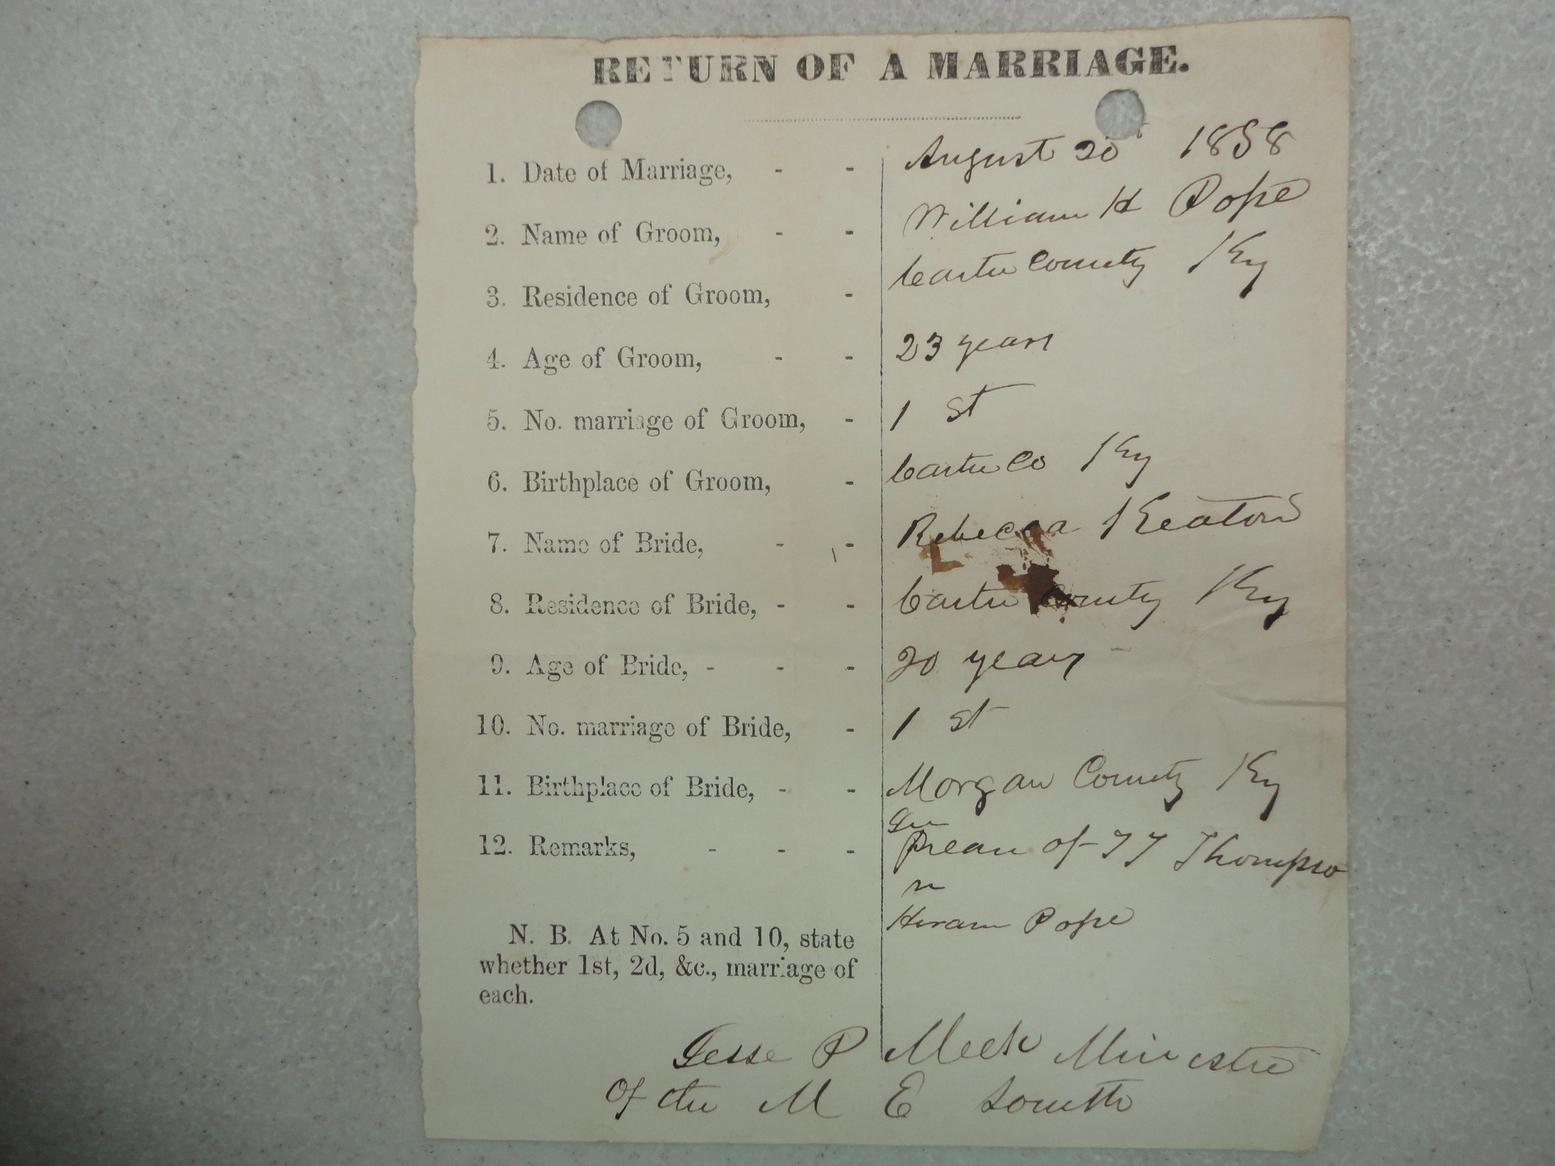 RETURN OF A MARRIAGE.
1. Date of Marriage, - - August 20t 1858
2. Name of Groom, - - William H Pope
3. Residence of Groom, - Carter County Ky
4. Age of Groom, - - 23 years
5. No. marriage of Groom, - 1 st
6. Birthplace of Groom, - Carter Co Ky
7. Name of Bride, - - Rebecca Keaton
8. Residence of Bride, - - Carter County Ky
9. Age of Bride, - - - 20 years
10. No. marriage of Bride, - 1 st
11. Birthplace of Bride, - - Morgan County Ky
12. Remarks, - - - of T T Thompso
n
Hiram Pope
N. B. At No. 5 and 10, state
whether 1st, 2d, &c., marriage of
each.
Jesse P Meek Minister
of the M E South